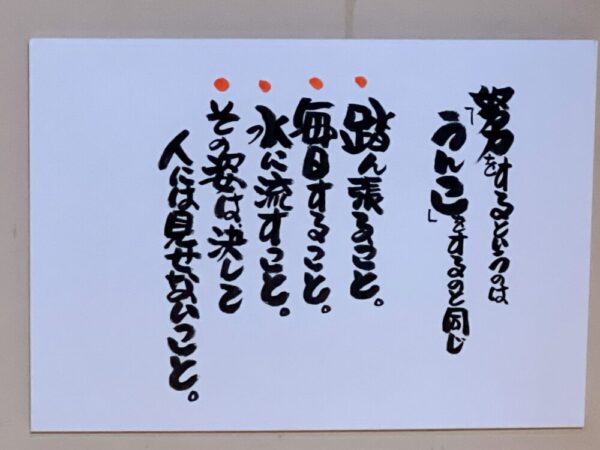 努力をするというのは
「うんこ」をするのと同じ
踏ん張ること。
毎日すること。
水に流すこと。
その姿は、決して
人には見せないこと。